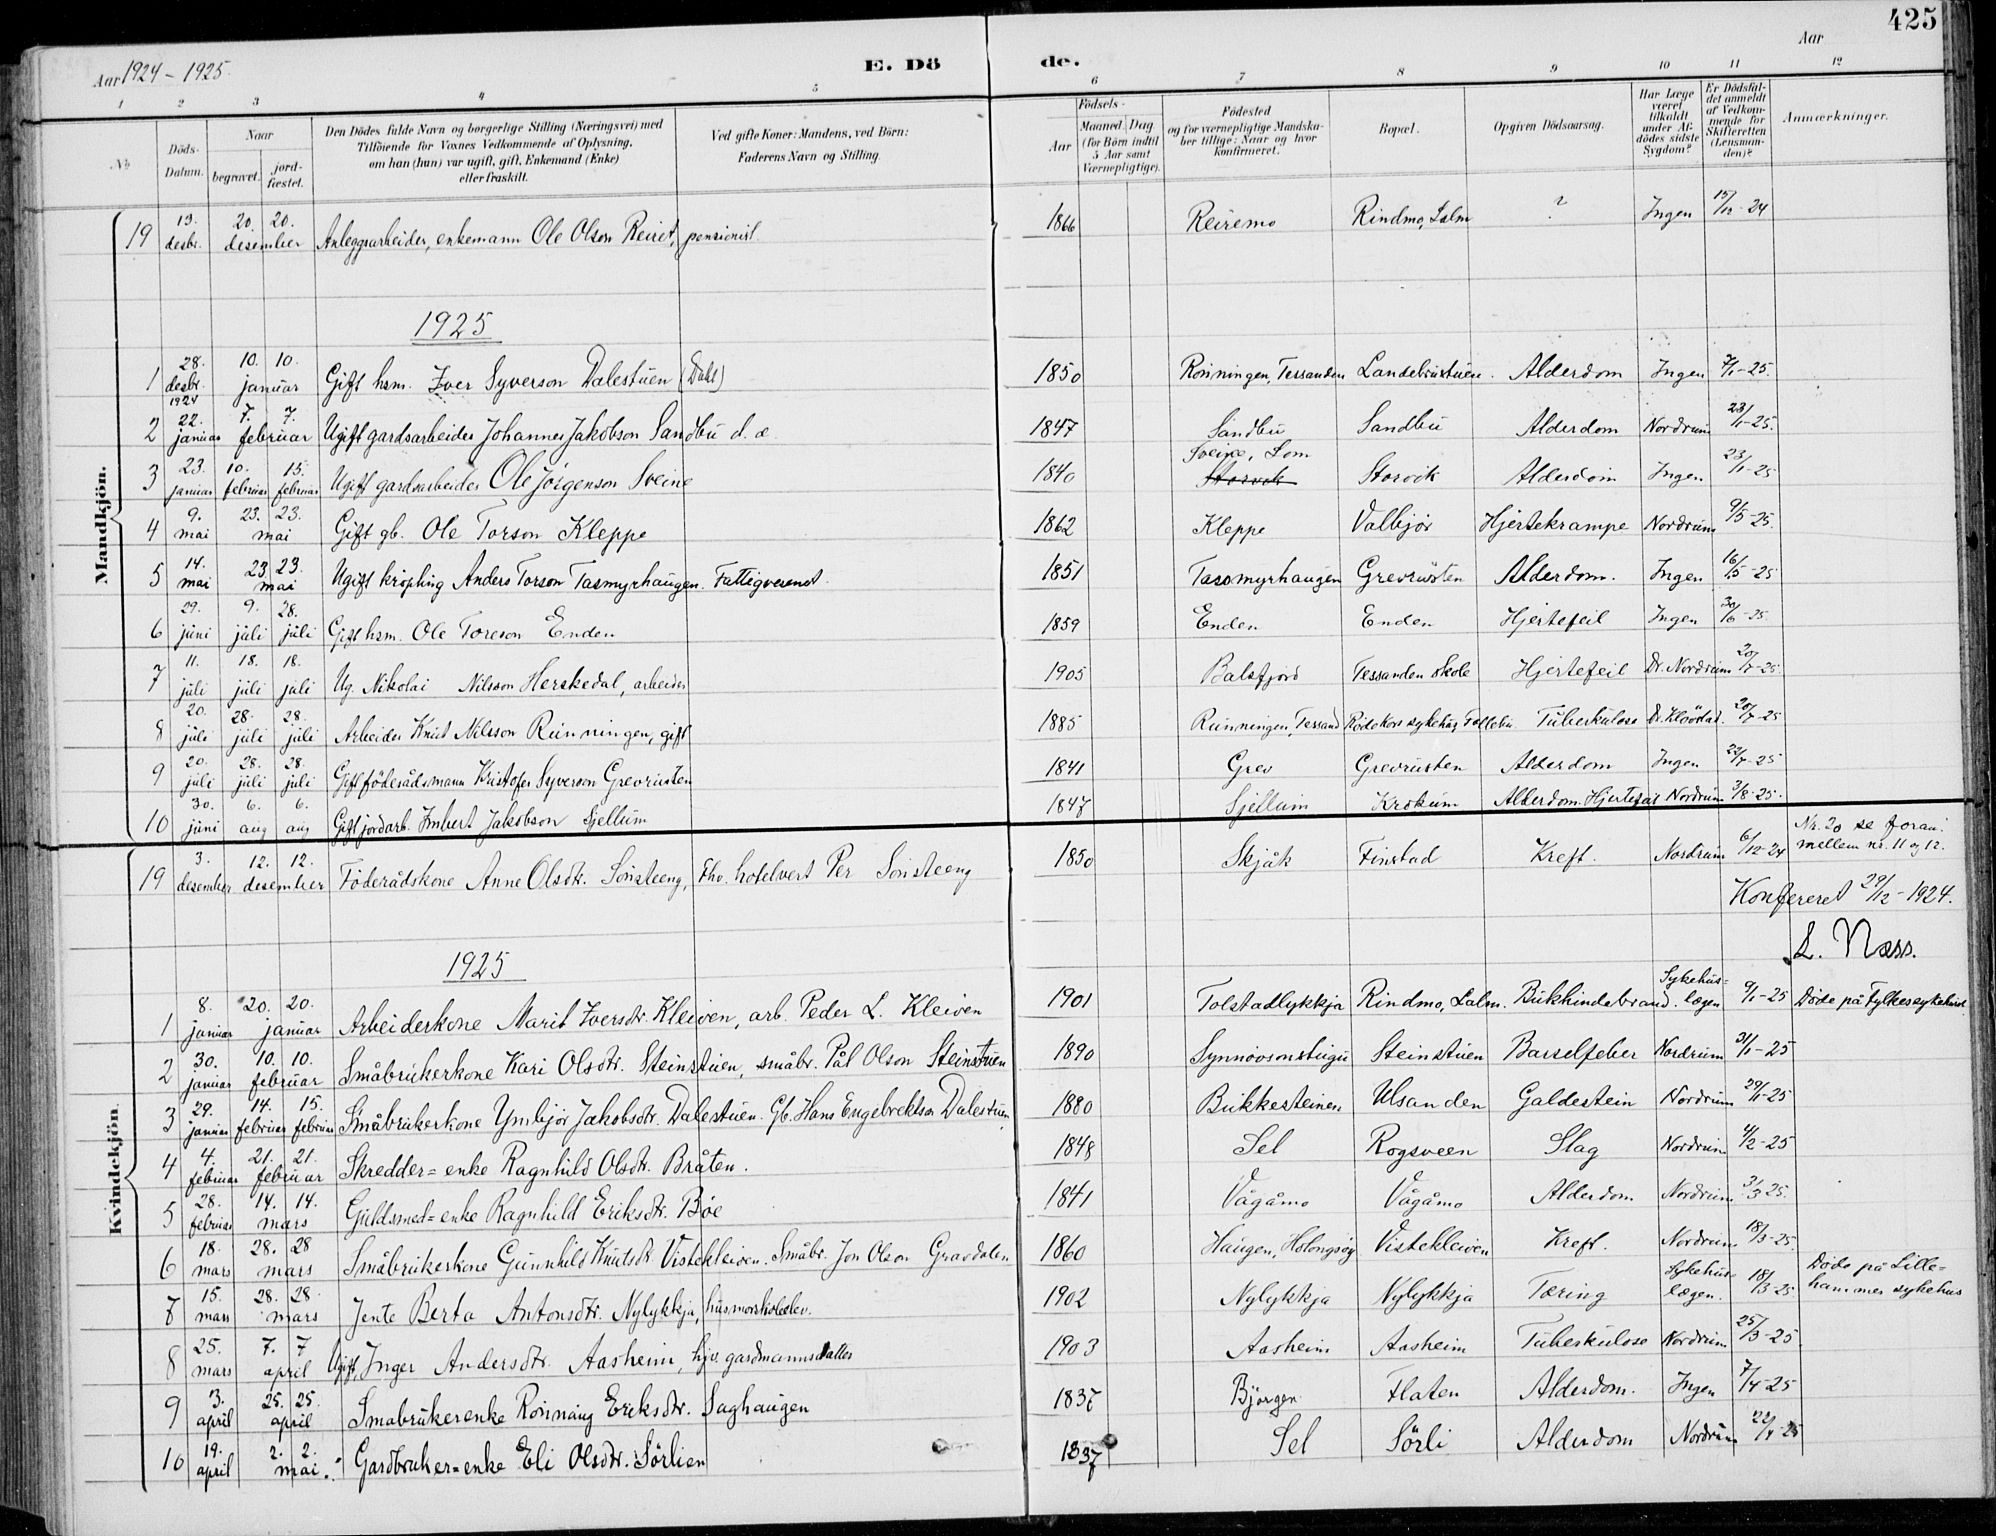 425
Aar 1924-1925.
E. Dö de.
Aar
1 2 3 4 5 6 7 8 9 10 11 12
№
Döds-Datum.
Naar
begravet.
jord-fæstet.
Den Dödes fulde Navn og borgerlige Stilling (Næringsvei) med
Tilföiende for Voxnes Vedkommende af Oplysning,
om han (hun) var ugift, gift, Enkemand (Enke)
eller fraskilt.
Ved gifte Koner: Mandens, ved Börn:
Faderens Navn og Stilling.
Födsels-
Aar
Maaned. Dag
(for Börn indtil
5 Aar samt
Værnepligtige).
Födested
og for værnepligtige Mandska-
ber tillige: Naar og hvor
konfirmeret.
Bopæl.
Opgiven Dödsaarsag.
Har Læge
været
tilkaldt
under Af-
dödes sidste
Sygdom?
Er Dödsfal-
det anmeldt
af Vedkom-
mende for
Skifteretten
(Lensman-
den)?
Anmærkninger.
Mandkjön.
19 13. desbr. 20. 20. desember Anleggsarbeider, enkemann Ole Olson Reiret, pensionist. 1866 Reiremo Rindmo, Lalm ? Ingen 15/12-24
1925
1 28. desbr. 1924 10. 10. januar Gift hsm. Iver Syverson Dalestuen (Dale) 1850 Rönningen, Tessanden Landebrustuen. Alderdom Ingen 7/1-25.
2 22. januar 7. 7. februar Ugift gardsarbeider Johannes Jakobson Sandbu d. æ. 1847 Sandbu Sandbu Alderdom Nordrum 23/1-25.
3 23. januar 10. februar 15. februar Ugift gardsarbeider Ole Jörgenson Sveine 1840 Sveine, Lom Storvik Storvik Alderdom Ingen 23/1-25
4 9. mai 23. 23. mai Gift gb. Ole Torson Kleppe 1862 Kleppe Valbjör Hjertekrampe Nordrum 9/5-25.
5 14. mai 23 23. mai Ugift kröpling Anders Torson Tasmyrhaugen. Fattigvesenet. 1851 Tassmyrhaugen Grevrusten Alderdom. Ingen 16/5-25
6 29. juni 9. juli 28. juli Gift hsm. Ole Toreson Enden 1859 Enden Enden Hjertefeil Ingen 30/6-25.
7 11. juli 18. juli 18. juli Ug. Nikolai Nilsson Herskedal, arbeider 1905 Balsfjord Tessanden skole Hjertefeil Dr. Nordrum 20/7-25.
8 20. juli 28. juli 28. juli Arbeider Knut Nilsson Runningen, gift 1885 Runningen, Tessand Röde Kors sykehus, Follebu Tuberkulose Dr. 20/7-25
9 20. juli 28. juli 28. juli Gift föderådsmann Kristofer Syverson Grevrusten 1841 Grev Grevrusten Alderdom Ingen 22/7-25
10 30. juni 6. aug 6. aug Gift jordarb. Imbert Jakobson Sjellum 1847 Sjellum Krökum Alderdom. Hjertefeil Nordrum 3/8-25.
Kvindekjön.
19 3. desember 12. 12. desember Föderådskone Anne Olsdtr. Sönsteeng, Fhv. hotelvert Per Sönsteeng 1850 Skjåk Finstad Kreft. Nordrum 6/12-24 Nr. 20 se foran. mellem nr. 11 og 12.
Konfereret 29/12-1924.
L. Næss.
1925
1 8. januar 20. 20. januar Arbeiderkone Marit Iversdtr. Kleiven, arb. Peder L. Kleiven 1901 Tolstadlykkja Rindmo, Lalm. Bukhindebrand. Sykehus-lægen 9/1-25 Döde på Fylkessykehuset.
2 30. januar 10. 10. februar Småbrukerkone Kari Olsdtr. Steinstuen, småbr. Pål Olson Steinstuen 1890 Synnövsonstugu Steinstuen Barselfeber Nordrum 31/1-25
3 29. januar 14. februar 15. februar Småbrukerkone Ymbjör Jakobsdtr. Dalestuen. Gb. Hans Engebrektson Dalestuen. 1880 Bukkesteinen Ulsanden Galdestein Nordrum 29/1-25
4 4. februar 21. 21. februar Skredder=enke Ragnhild Olsdtr. Bråten. 1848 Sel Rogsveen Slag Nordrum 4/2-25
5 28. februar 14. 14. mars Guldsmed=enke Ragnhild Eriksdtr. Böe 1841 Vågåmo Vågåmo Alderdom Nordrum 3/3 25.
6 18. mars 28. 28 mars Småbrukerkone Gunnhild Knutsdtr. Vistekleiven. Småbr. Jon Olson Gravdalen 1860 Haugen, Vistekleiven Kreft. Nordrum 18/3-25.
7 15. mars 28. 28. mars Jente Berta Antonsdtr. Nylykkja, husmorskoleelev. 1902 Nylykkja Nylykkja Tæring Sykehus-lægen. 18/3-25 Döde på Lille=hammer sykehus
8 25. mars 7. 7 april Ugift, Inger Andersdtr. Aasheim, hjv. gardmannsdatter 1903 Aasheim Aasheim Tuberkulose Nordrum 25/3-25.
9 3. april 25. 25. april Småbrukerenke Rönnaug Eriksdtr. Saghaugen 1837 Björgen Flaten Alderdom. Ingen 7/4-25
10 19. april 2. 2. mai. Gardbruker=enke Eli Olsdtr. Sörlien 1837 Sel Sörli Alderdom Nordrum 22/4-25